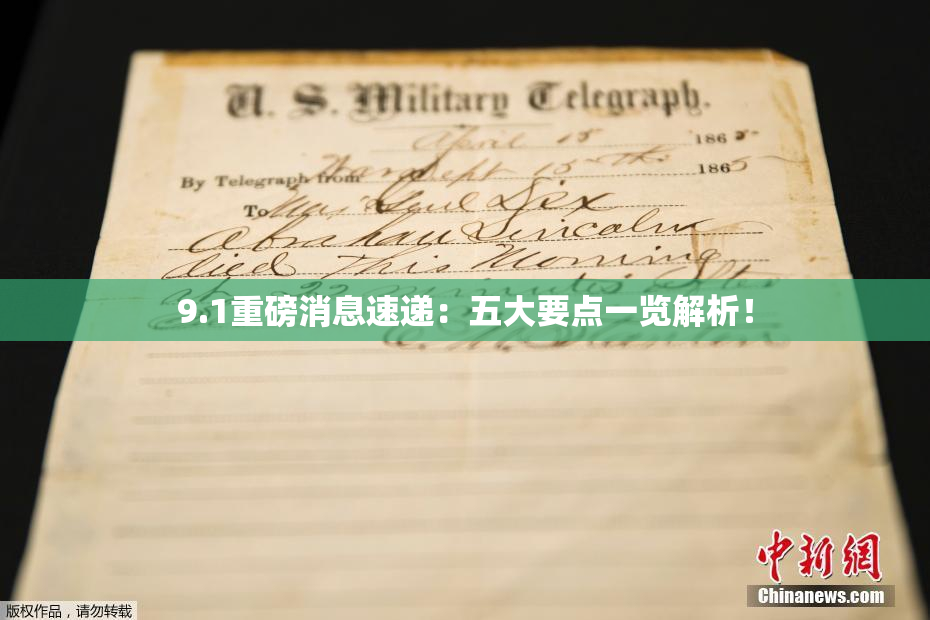 U. S. Military Telegraph.
April 15 1865
By Telegraph from War Dept 15th 1865
To Maj Genl Dix
Abraham Lincoln
died This Morning
at 22 minutes after
9.1重磅消息速递：五大要点一览解析！
E. M. Stanton
中新网
Chinanews.com
版权作品，请勿转载